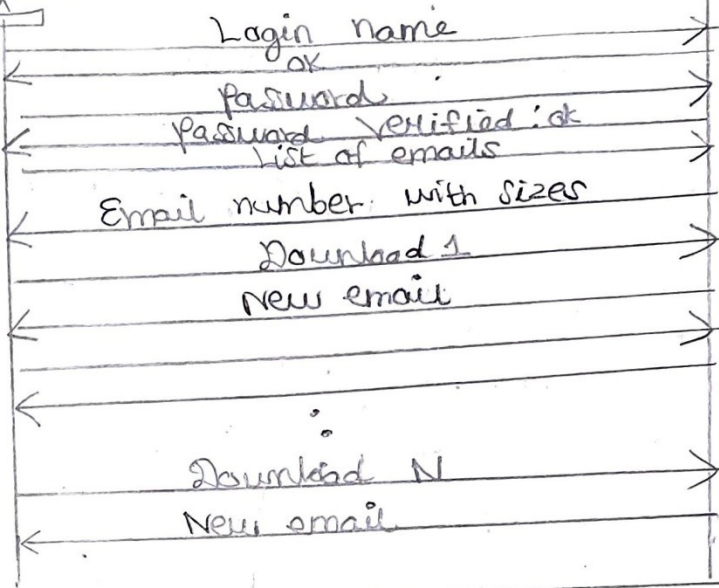 Login name
OK
Password
Password Verified : ok
List of emails
Email number with sizes
Download 1
New email
Download N
New email